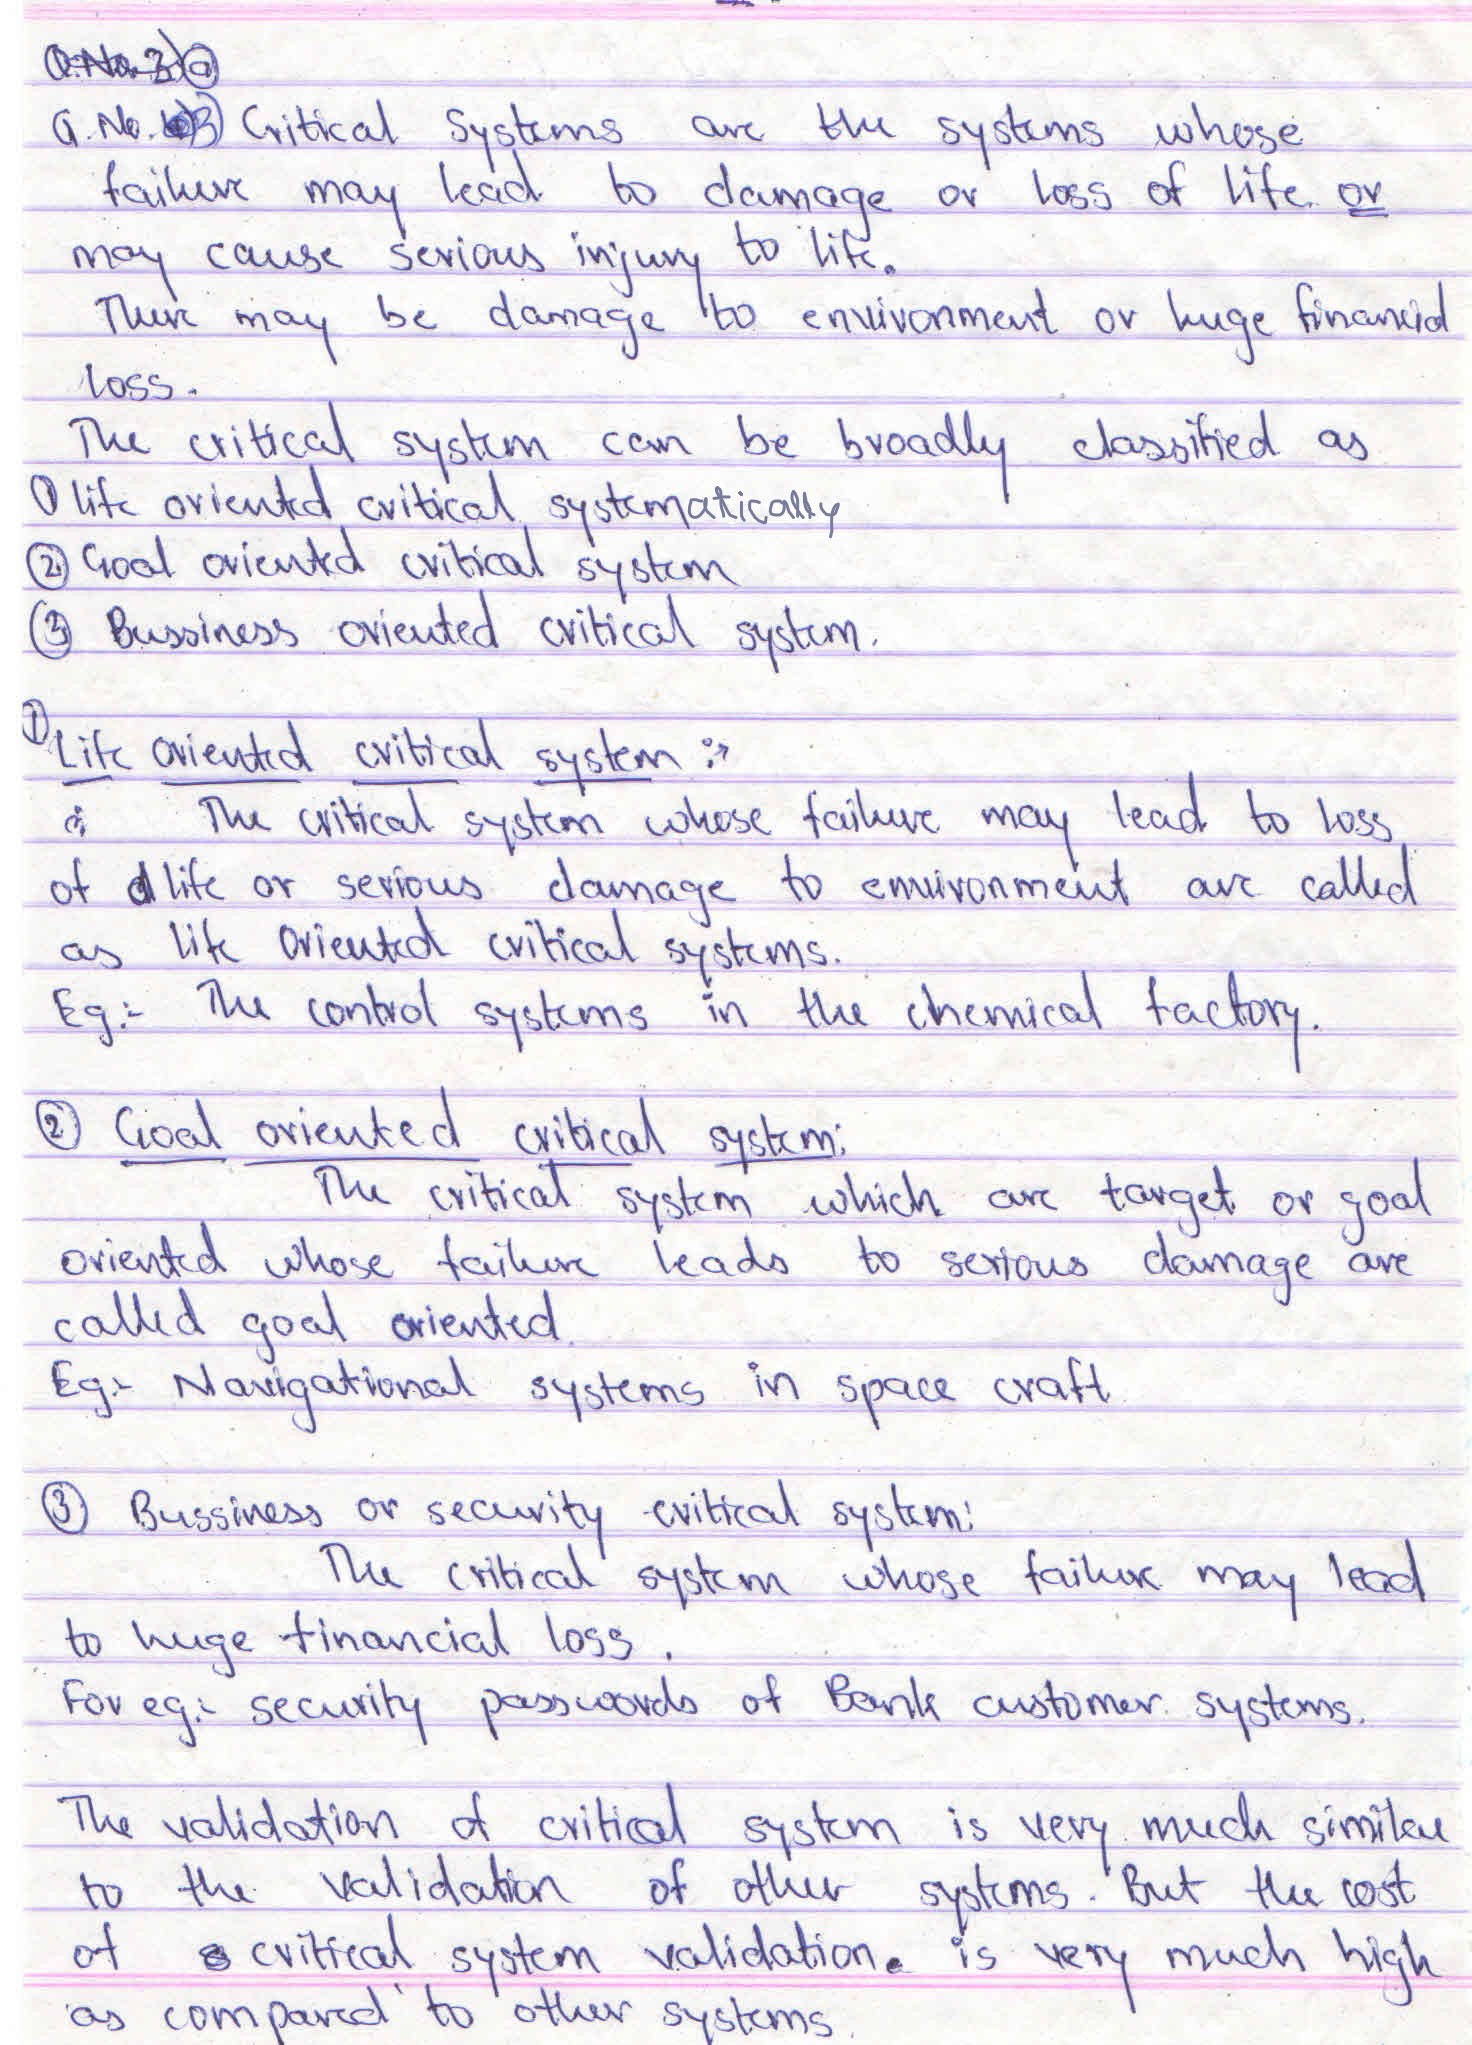 Q.No.3) a
Q.No. 3) Critical Systems are the systems whose
failure may lead to damage or loss of life or
may cause serious injury to life.
There may be damage to environment or huge financial
loss.
The critical system can be broadly classified as
① life oriented critical systematically
② Goal oriented critical system
③ Bussiness oriented critical system.
① Life oriented critical system :→
The critical system whose failure may lead to loss
of life or serious damage to environment are called
as life oriented critical systems.
Eg:- The control systems in the chemical factory.
② Goal oriented critical system:
The critical system which are target or goal
oriented whose failure leads to serious damage are
called goal oriented.
Eg:- Navigational systems in space craft
③ Bussiness or security critical system:
The critical system whose failure may lead
to huge financial loss.
For eg:- security passwords of Bank customer systems.
The validation of critical system is very much similar
to the validation of other systems. But the cost
of critical system validation. is very much high
as compared to other systems.